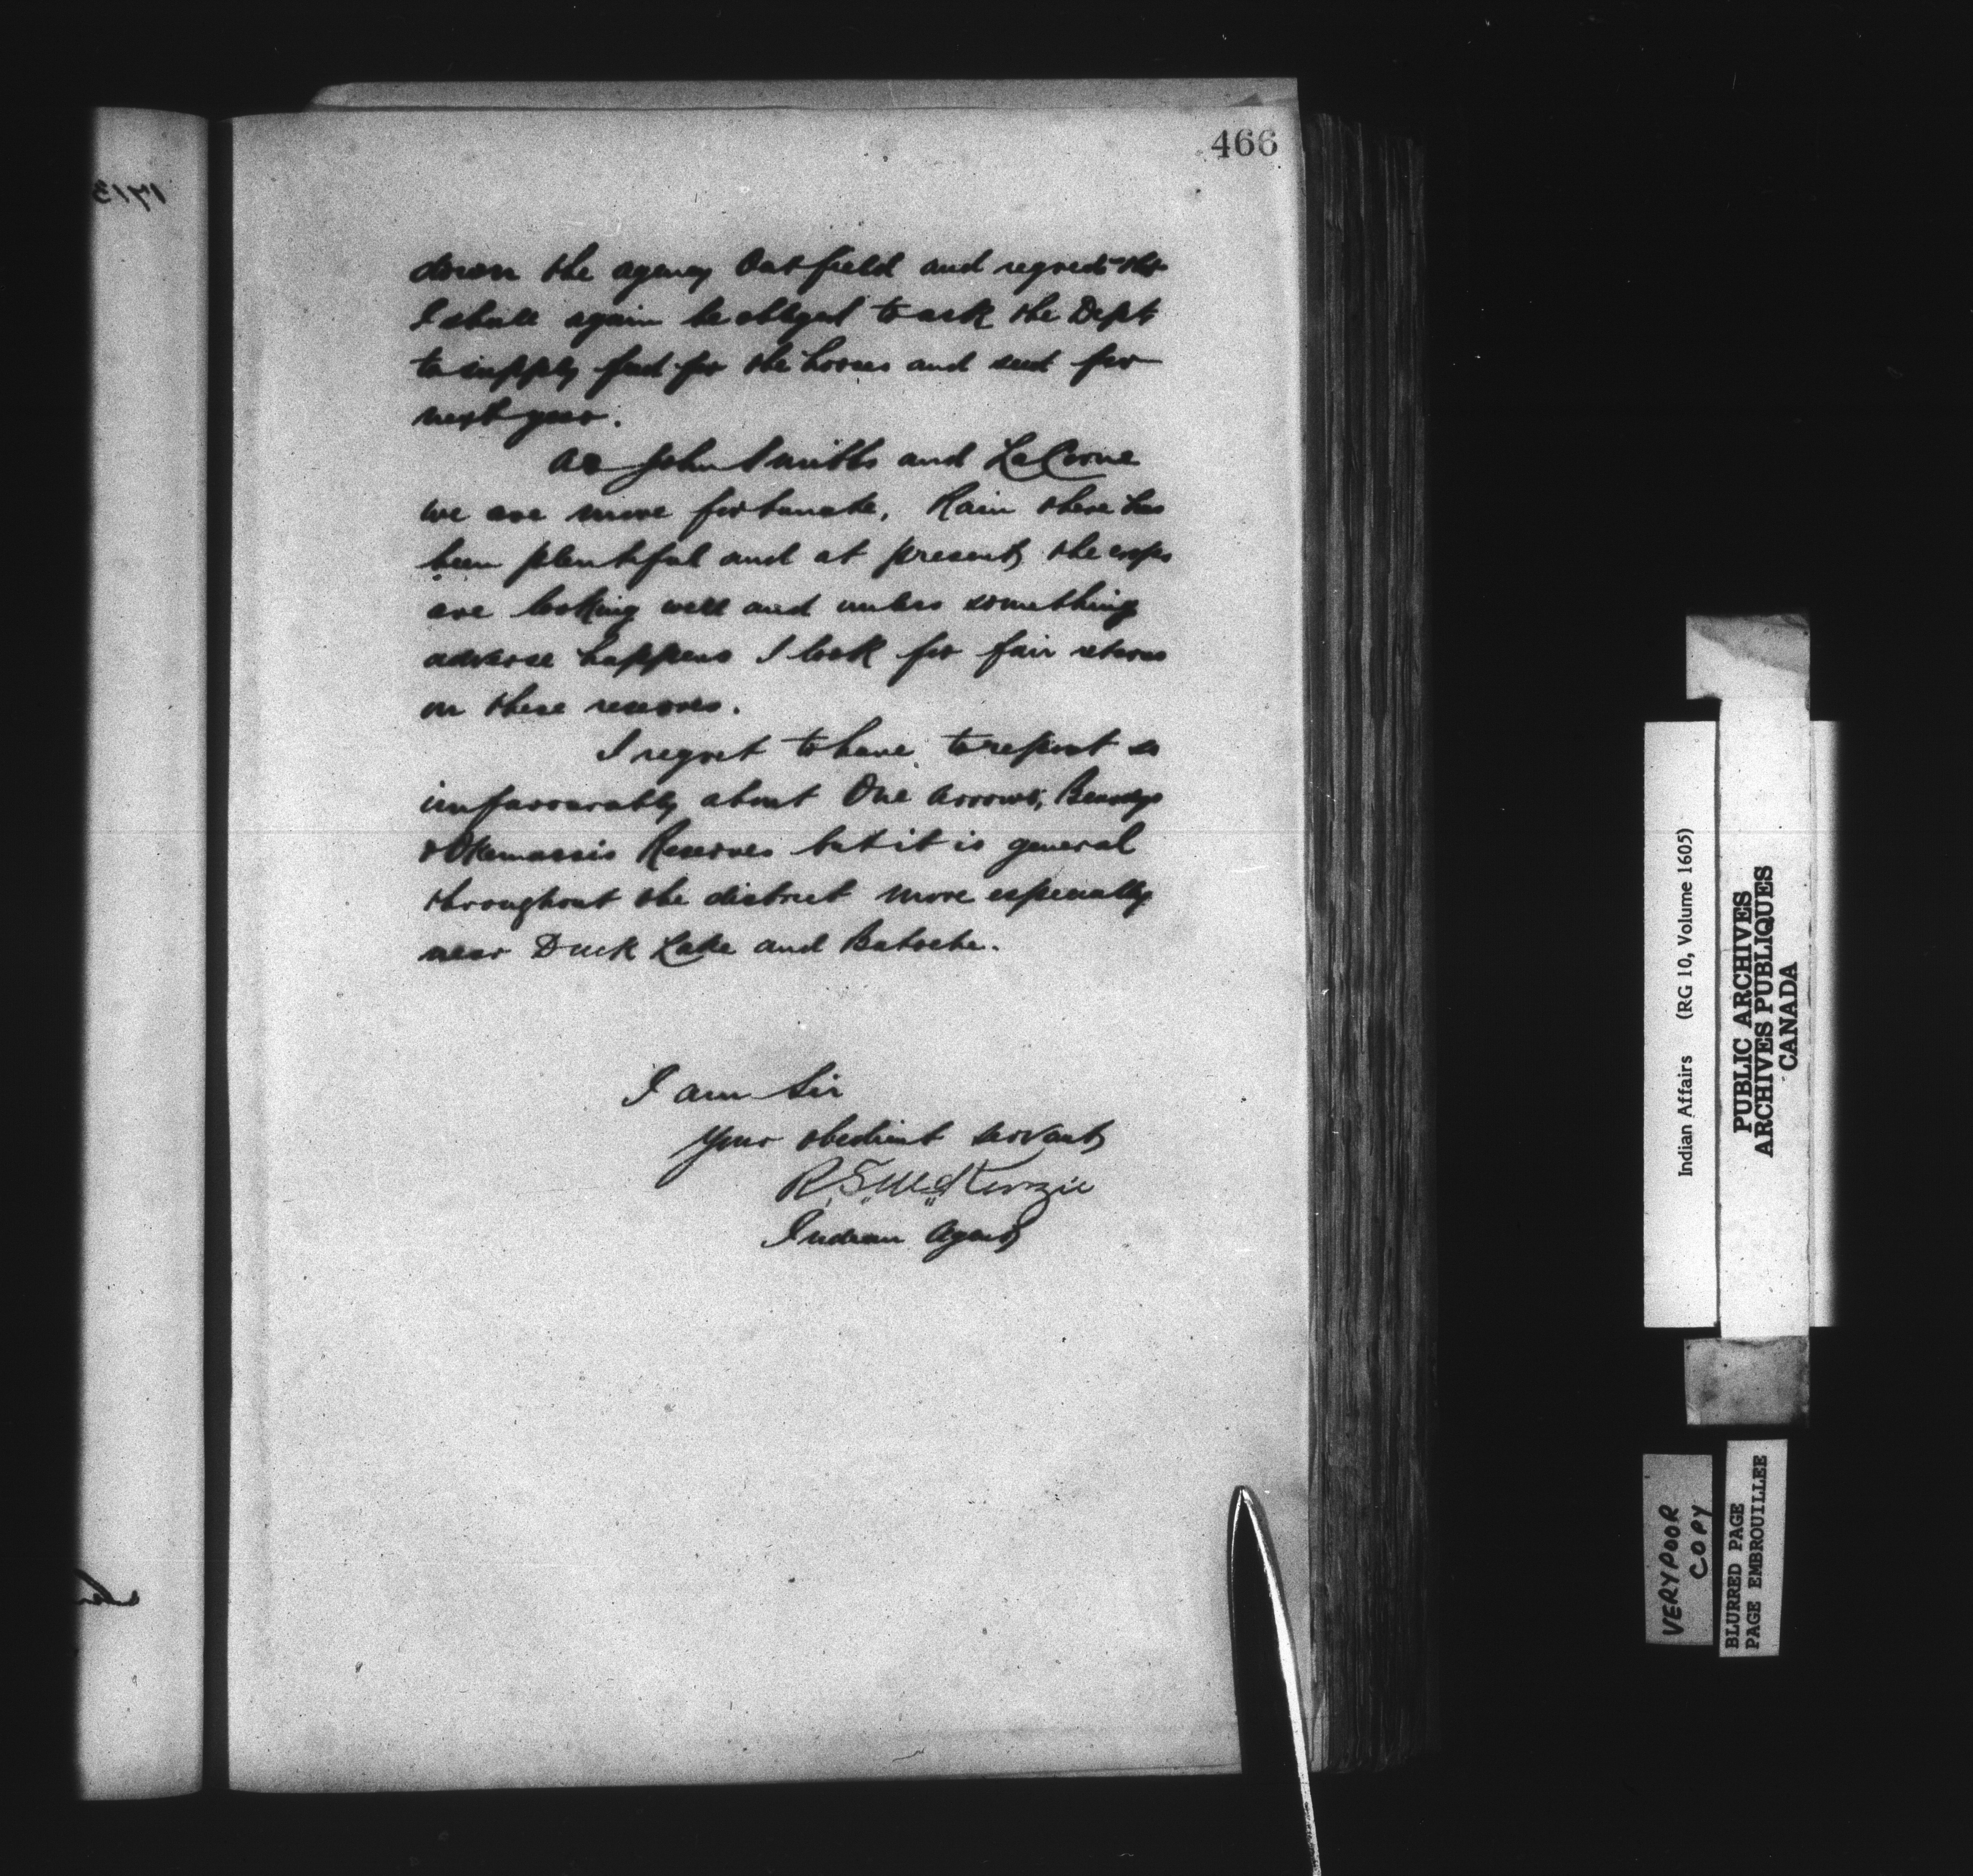 466
down the agency Oat field and regret that
I shall again be obliged to ask the Dept
to supply feed for the horses and seed for
next year.
At John Smiths and LaCorne
we are more fortunate. Rain there has
been plentiful and at present the crops
are looking well and unless something
adverse happens I look for fair returns
on these reserves.
I regret to have to report so
unfavourably about One Arrows, Beardys
& Okemassis Reserves but it is general
throughout the district more especially
near Duck Lake and Batoche.
I am Sir
Your obedient servant
R. S. McKenzie
Indian Agent
Indian Affairs (RG 10, Volume 1605)
PUBLIC ARCHIVES
ARCHIVES PUBLIQUES
CANADA
VERY POOR
COPY
BLURRED PAGE
PAGE EMBROUILLEE